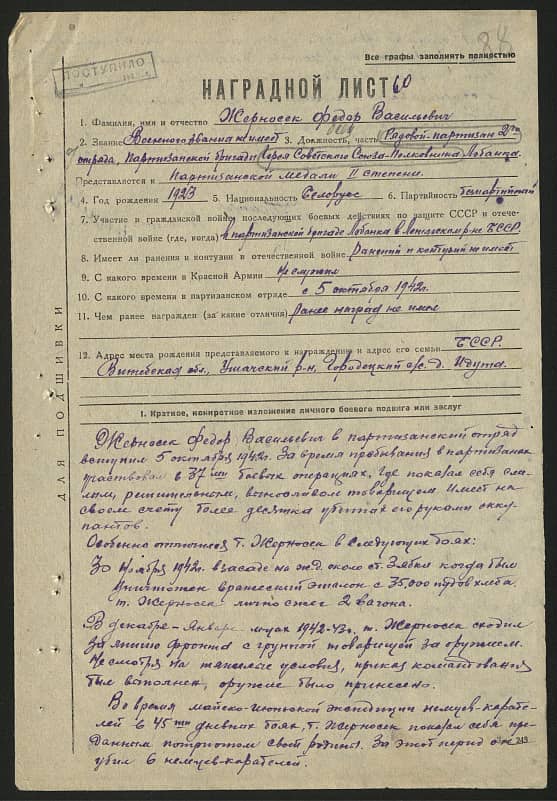 Все графы заполнять полностью
84
ПОСТУПИЛО
НАГРАДНОЙ ЛИСТ 60
1. Фамилия, имя и отчество Жерносек Федор Васильевич
2. Звание Военного звания не имеет 3. Должность, часть Рядовой-партизан 2го
отряда, Партизанской бригады Героя Советского Союза-Полковника Лобанка.
Представляется к Партизанской медали II степени.
4. Год рождения 1923 5. Национальность Белорус 6. Партийность беспартийный
7. Участие в гражданской войне, последующих боевых действиях по защите СССР и отече-
ственной войне (где, когда) в партизанской бригаде Лобанка в Лепельском р-не БССР.
8. Имеет ли ранения и контузии в отечественной войне Ранений и контузий не имеет
9. С какого времени в Красной Армии не служил
10. С какого времени в партизанском отряде с 5 октября 1942г.
11. Чем ранее награжден (за какие отличия) Ранее наград не имел
12. Адрес места рождения представляемого к награждению и адрес его семьи БССР.
Витебская обл., Ушачский р-н, Городецкий с/с. д. Идута.
ДЛЯ ПОДШИВКИ
I. Краткое, конкретное изложение личного боевого подвига или заслуг
Жерносек Федор Васильевич в партизанский отряд
вступил 5 октября 1942г. За время пребывания в партизанах
участвовал в 37ми боевых операциях, где показал себя сме-
лым, решительным, выносливым товарищем. Имеет на
своем счету более десятка убитых его руками окку-
пантов.
Особенно отличился т. Жерносек в следующих боях:
30 ноября 1942г. в засаде на ж.д. около ст. Зябки когда был
уничтожен вражеский эшалон с 35,000 пудов хлеба.
т. Жерносек лично сжег 2 вагона.
В декабре-Январе м-цах 1942-43г. т. Жерносек сходил
за линию фронта с группой товарищей за оружием.
Несмотря на тяжелые условия, приказ командования
был выполнен, оружие было принесено.
Во время майско-июньской экспедиции немцев-карате-
лей в 45ти дневных боях, т. Жерносек показал себя пре-
данным патриотом своей родины. За этот период он
убил 6 немцев-карателей.
243